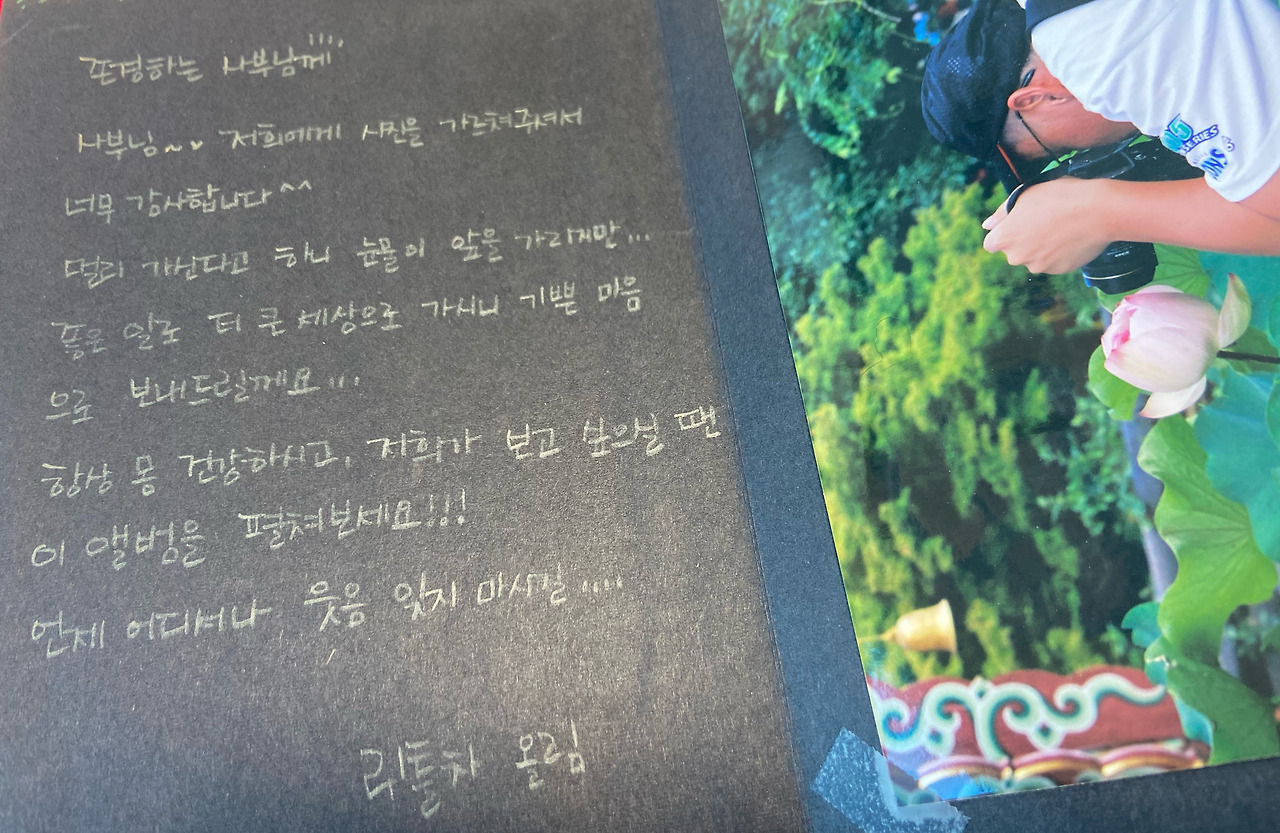 존경하는 사부님께....
사부님~~ 저희에게 사진을 가르쳐주셔서
너무 감사합니다^^
멀리 가신다고 하니 눈물이 앞을 가리지만...
좋은 일로 더 큰 세상으로 가시니 기쁜 마음
으로 보내드릴께요...
항상 몸 건강하시고, 저희가 보고 싶으실 땐
이 앨범을 펼쳐보세요!!!
언제 어디서나 웃음 잃지 마시길....
리틀차 올림
SERIES